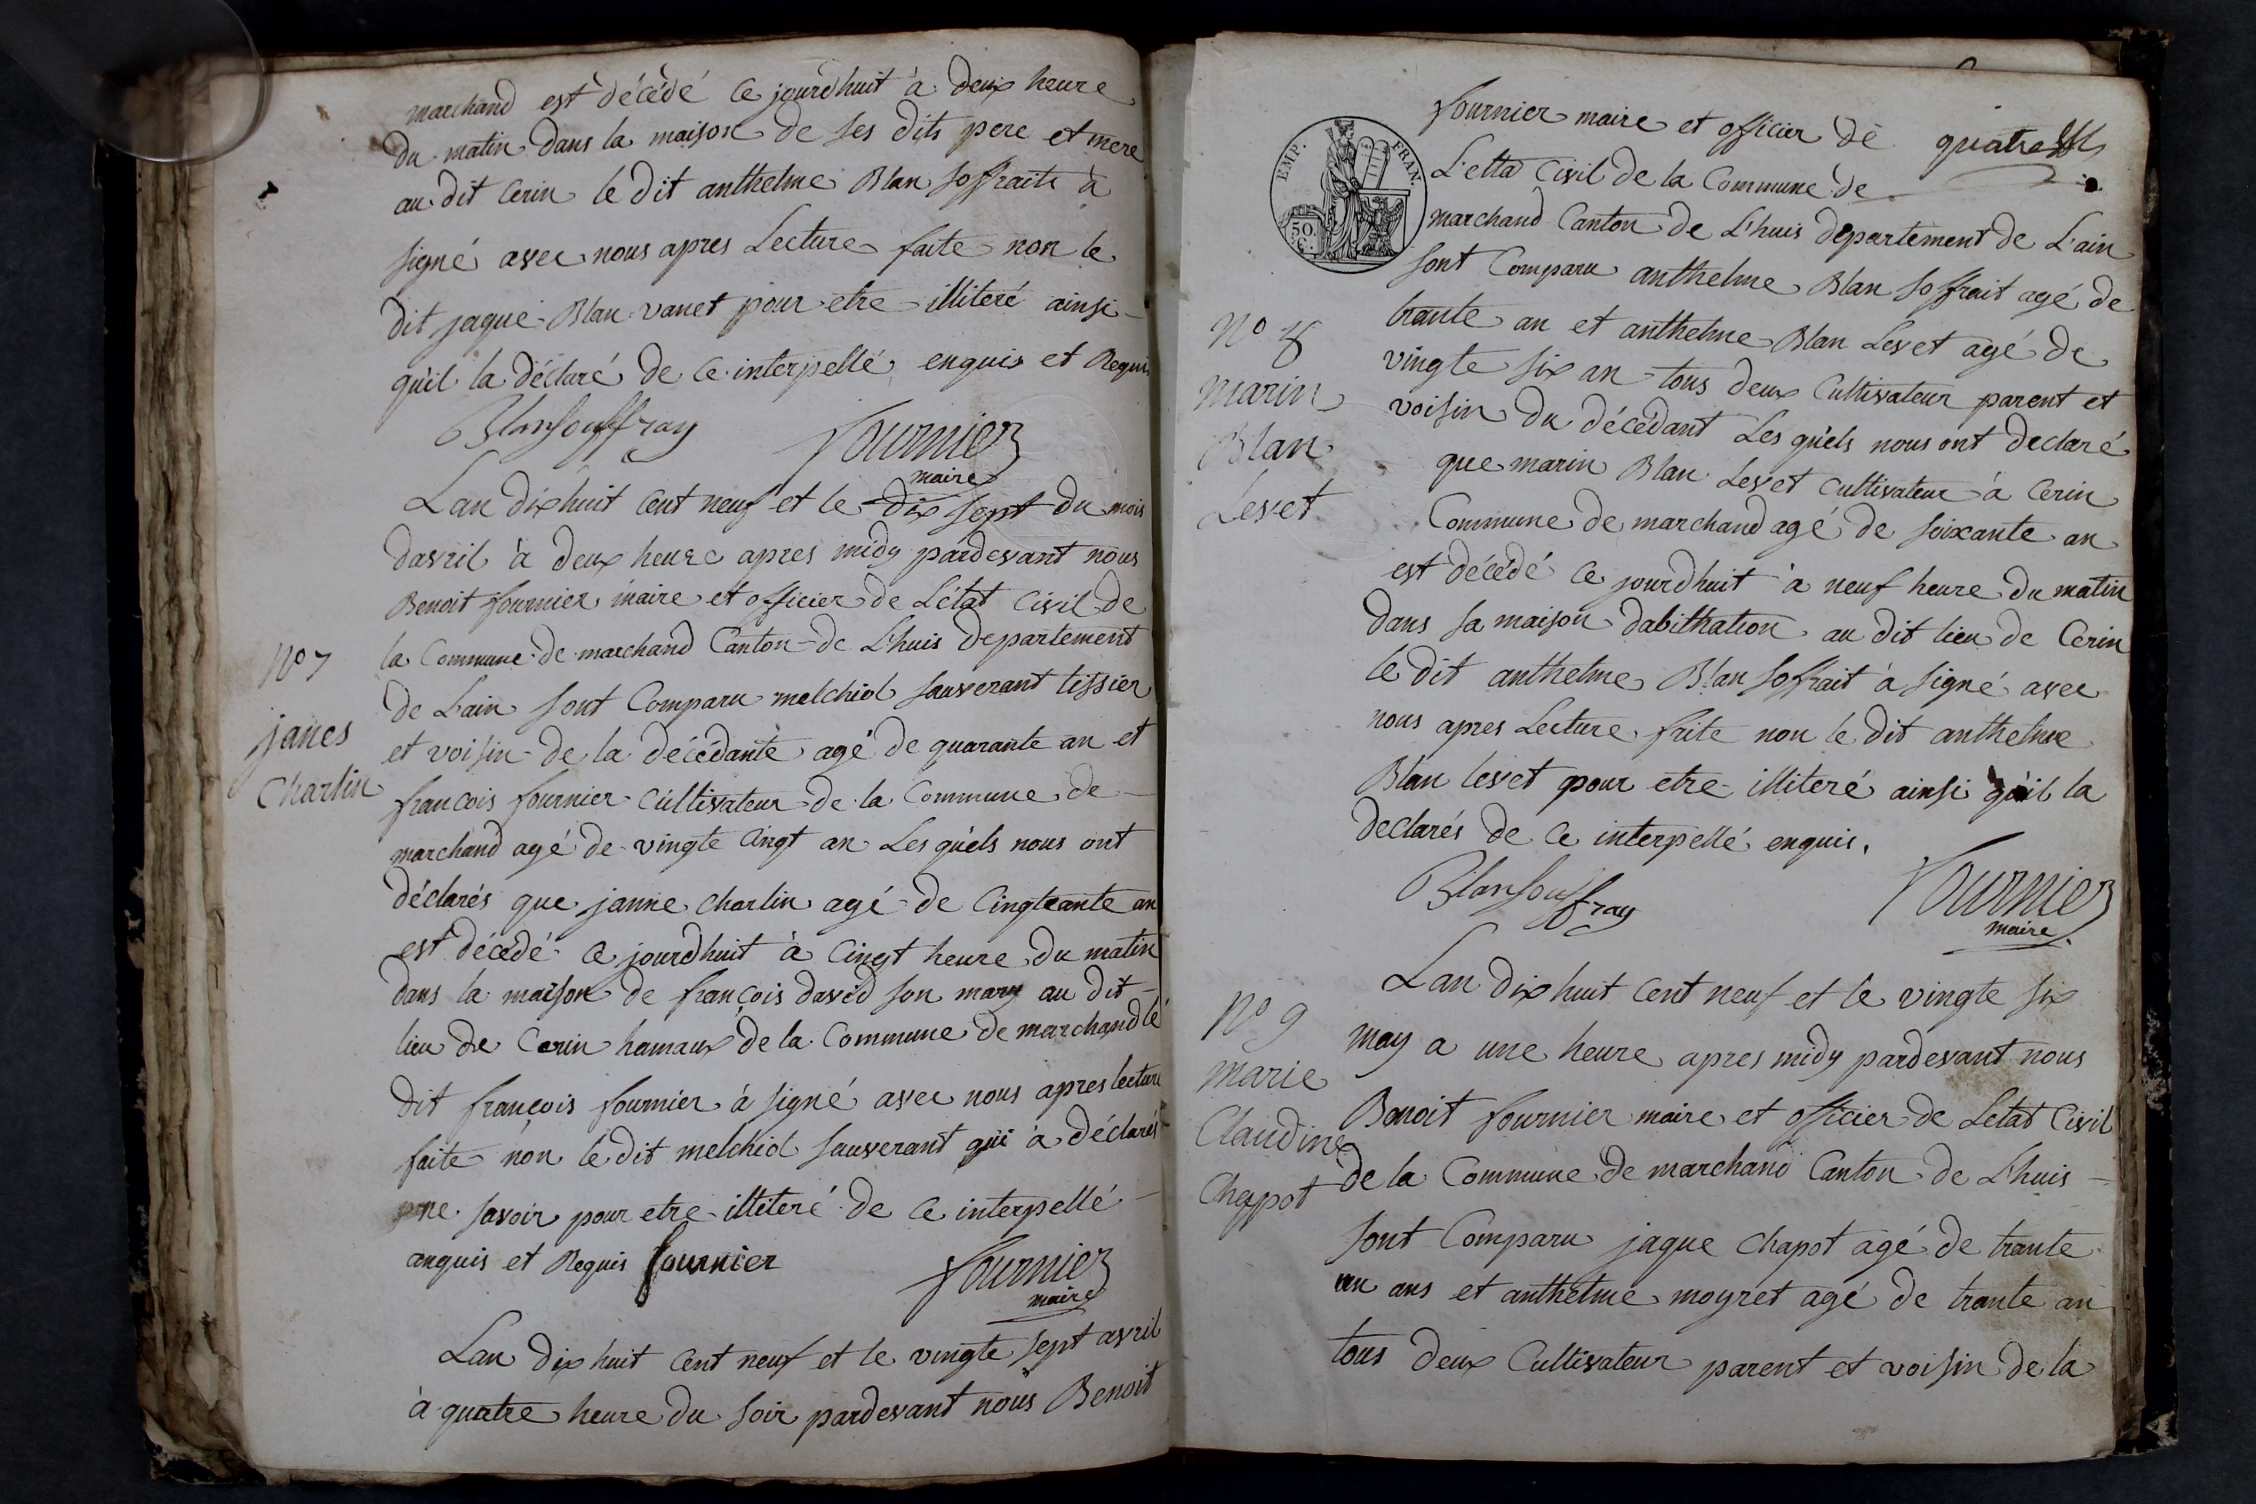 marchand est décédé ce jourdhuit à deux heure
du matin dans la maison de ses dits pere et mere
au dit Cerin le dit anthelme Blan soffraite à
signé avec nous apres Lecture faite non le
dit jaque Blan vanet pour etre illiteré ainsi
qu'il la déclaré de ce interpellé enquis et Requis
Blansouffray
fournier
maire
Lan dixhuit cent neuf et le dix sept du mois
davril à deux heure apres midy pardevant nous
Benoit fournier maire et officier de Létat Civil de
la Commune de marchand Canton de Lhuis departement
de Lain sont Comparu melchiol sauverant tissier
et voisin de la décédante agé de quarante an et
francois fournier Cultivateur de la Commune de
marchand agé de vingte cingt an Les quels nous ont
déclarés que janne charlin agé de Cingteante an
est décédé ce jourdhuit à cingt heure du matin
dans la maison de françois david son mary au dit
lieu de Cerin hamaux de la Commune de marchand le
dit françois fournier à signé avec nous apres lecture
faite non le dit melchiol sauverant qui à déclarés
ne savoir pour etre illiteré de ce interpellé
anquis et Requis fournier
fournier
maire
Lan dix huit cent neuf et le vingte sept avril
à quatre heure du soir pardevant nous Benoit
N° 7
janes
Charlin
EMP. FRAN.
50.
C.
quatre
fournier maire et officier de
L'etta Civil de la Commune de
marchand Canton de L'huis departement de L'ain
sont Comparu anthelme Blan soffrait agé de
trante an et anthelme Blan Levet agé de
vingte six an tous deux Cultivateur parent et
voisin du décédant Les quels nous ont declaré
que marin Blan Levet cultivateur à Cerin
Commune de marchand agé de soixante an
est décédé ce jourdhuit à neuf heure du matin
dans sa maison dabithation au dit lieu de Cerin
le dit anthelme Blan soffrait à signé avec
nous apres Lecture faite non le dit anthelme
Blan levet pour etre illiteré ainsi qu'il la
declarés de ce interpellé enquis.
Blansouffray
fournier
maire
N° 8
Marin
Blan
Levet
Lan dix huit cent neuf et le vingte six
may a une heure apres midy pardevant nous
Benoit fournier maire et officier de Letat Civil
de la Commune de marchand Canton de L'huis
sont Comparu jaque chapot agé de trante
un ans et anthelme moyret agé de trante an
tous deux Cultivateur parent et voisin de la
N° 9
marie
Claudine
Chappot